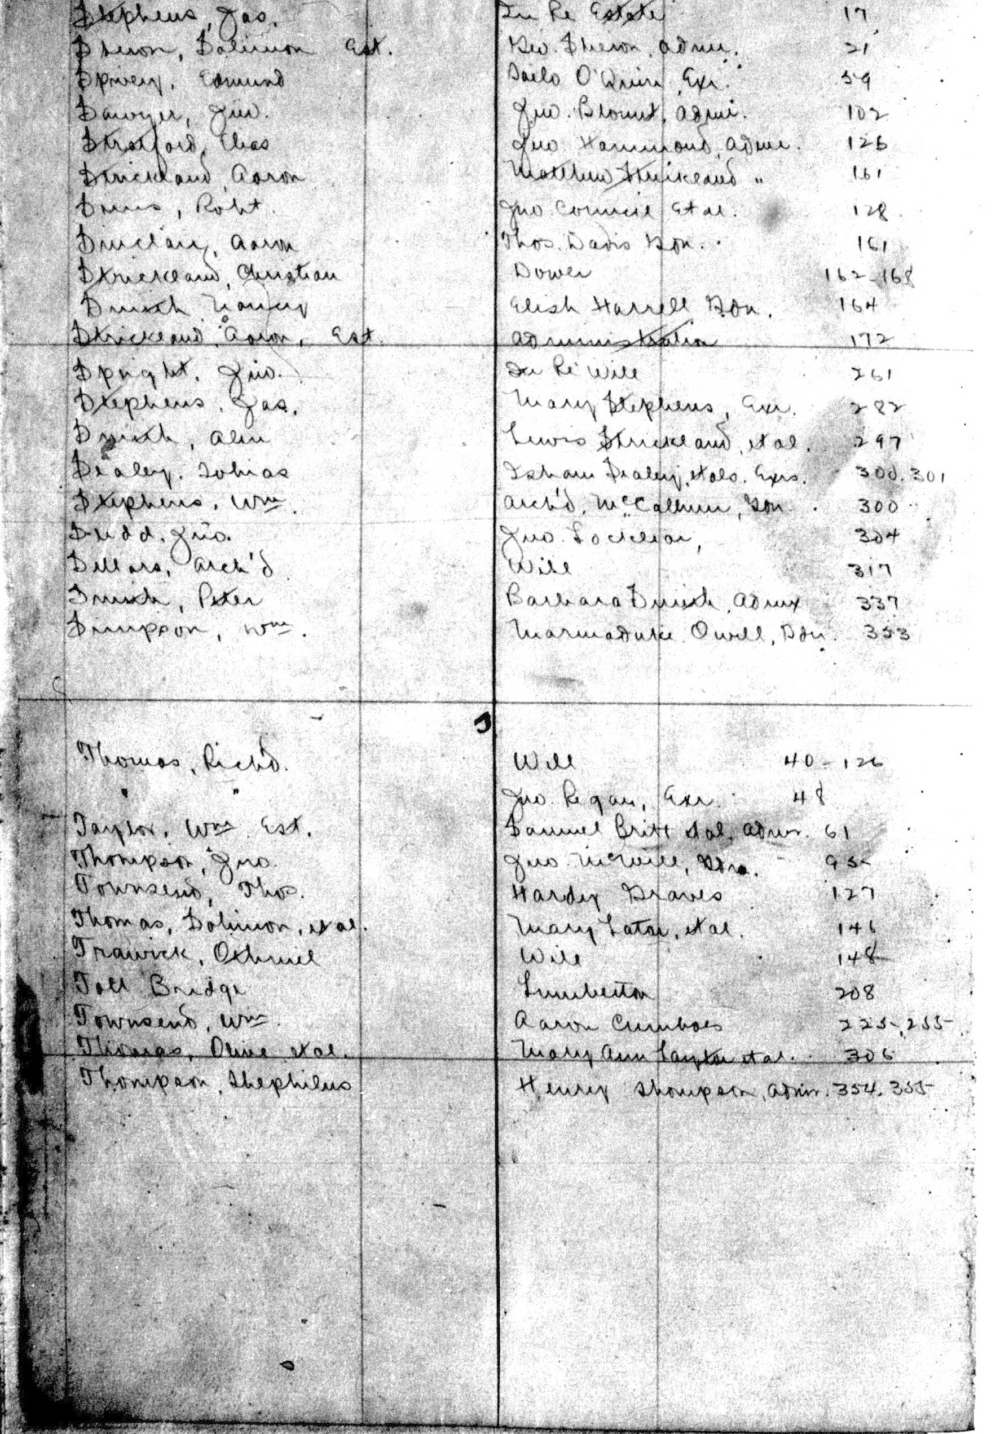 Stephens, Jas. In Re Estate 17
Sheron, Solimon Est. Geo. Sheron, Admr. 21
Spivey, Edmund O'Quin, Exr. 59
Sawyer, Jno. Jno. Blount, Admr. 102
Stratford, Elias Jno Hammond, Admr. 126
Strickland, Aaron Matthew Strickland " 161
Robt. Jno Etal. 128
Sinclair, Aaron Thos. Davis Gdn. 161
Strickland, Christian Dower 162-168
Smith Nancy Elish Harrell Gdn. 164
Strickland, Aaron, Est. Administration 172
Spright, Jno. In Re Will 261
Stephens, Jas. Mary Stephens, Exr. 282
Smith, Lewis Strickland, etal. 297
Sealey, Tobias Isham Sealey, etals. Exrs. 300, 301
Stephens, Wm. Arch'd. McCallum, Gdn. 300
Jno. Jno. Locklear, 304
Sellars, Arch'd Will 317
Smith, Peter Barbara Smith, Admx 337
Simpson, Wm. Marmaduke Gdn. 353
Thomas, Rich'd. Will 40-126
" " Jno. Regan, Exr. 48
Taylor, Wm Est. Samuel Britt etal, Admr. 61
Thompson, Jno. Jno. McNeill, 95
Townsend, Thos. Hardy Graves 127
Thomas, Solimon, etal. Mary etal. 146
Trawick, Othniel Will 148
Toll Bridge Lumberton 208
Townsend, Wm. Aaron Cumboes 225, 255
Thomas, Olive etal. Mary Ann etal. 306
Thompson, Henry Thompson, Admr. 354, 355